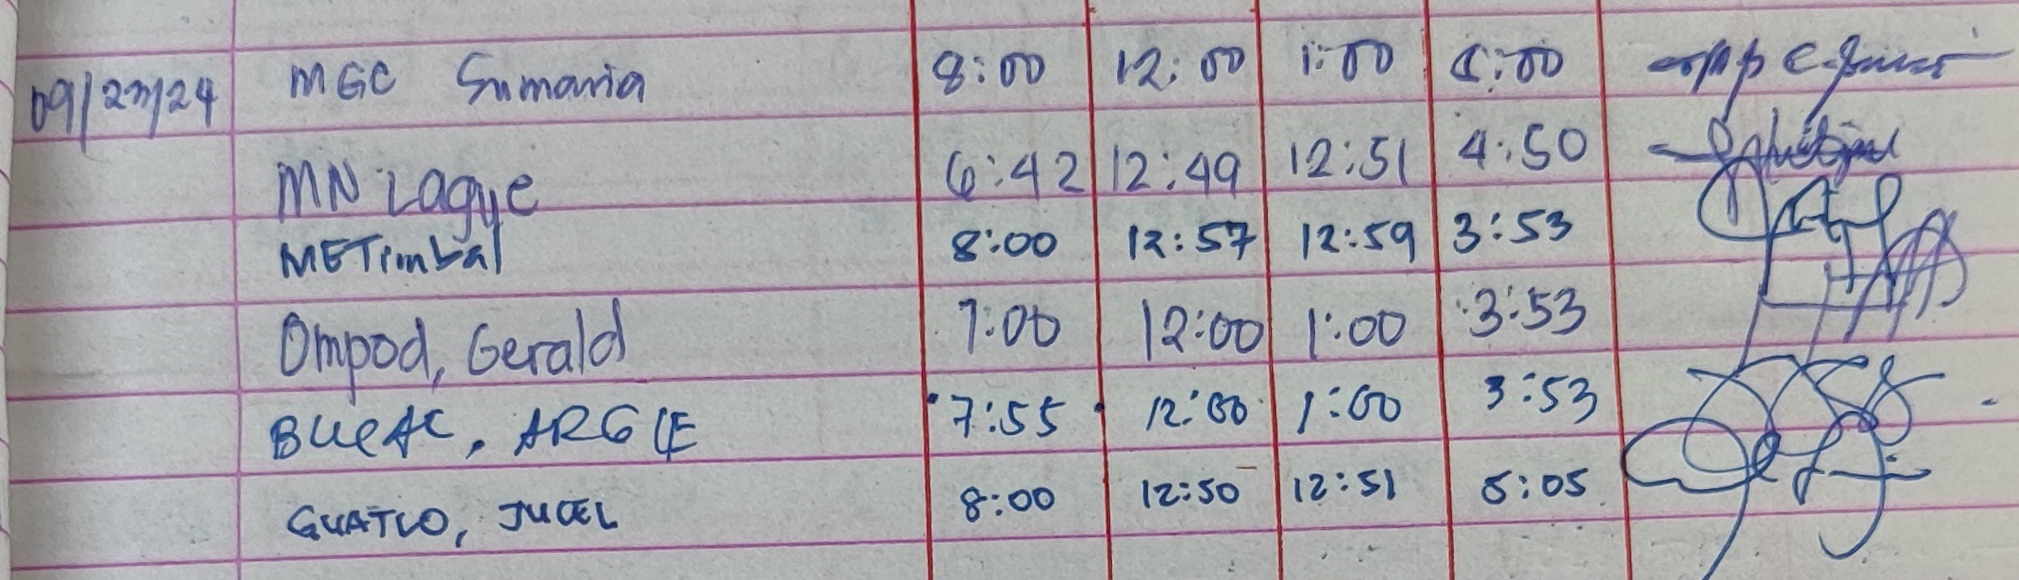 09/23/24 MGC Sumania 8:00 12:00 1:00 5:00
MN Lague 6:42 12:49 12:51 4:50
METimbal 8:00 12:57 12:59 3:53
Ompod, Gerald 7:00 12:00 1:00 3:53
7:55 12:00 1:00 3:53
GUATLO, JUCEL 8:00 12:50 12:51 5:05